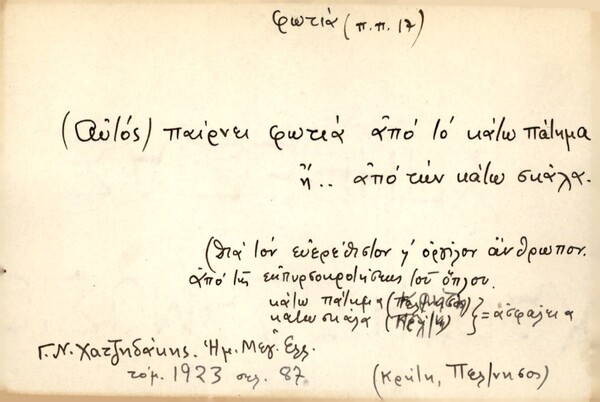 φωτιὰ (π.π. 17)
(Αὐτός) παίρνει φωτιὰ ἀπό τό κάτω πάτημα
ἤ.. ἀπό τήν κάτω σκάλα.
(διά τόν εὐερέθιστον κ' ὀργίλον ἄνθρωπον.
ἀπό τῆς ἐκπυρσοκροτήσεως τοῦ ὅπλου.
κάτω πάτημα (Πελ/νησος)
κάτω σκάλα (Κρήτη) } = ἀσφάλεια
Γ.Ν. Χατζηδάκης. Ἡμ. Μεγ. Ἑλλ.
τόμ. 1923 σελ. 87.
(Κρήτη, Πελ/νησος)